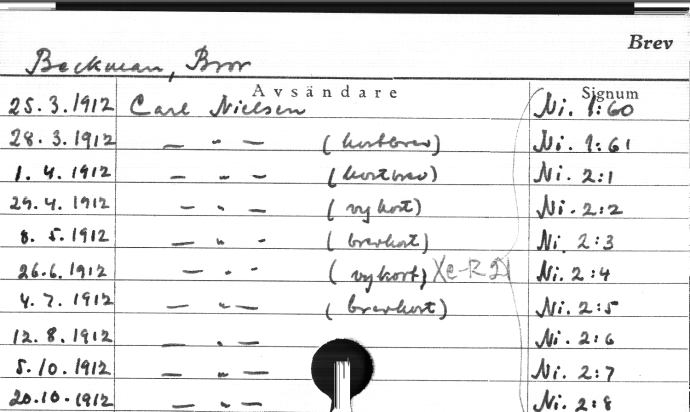 Brev
Beckman, Bror
Avsändare Signum
25.3.1912 Carl Nielsen Ni. 1:60
28.3.1912 — " — (kortbrev) Ni. 1:61
1.4.1912 — " — (kortbrev) Ni. 2:1
29.4.1912 — " — (vykort) Ni. 2:2
8.5.1912 — " — (brevkort) Ni. 2:3
26.6.1912 — " — (vykort) Xe-R 21 Ni. 2:4
4.7.1912 — " — (brevkort) Ni. 2:5
12.8.1912 — " — Ni. 2:6
5.10.1912 — " — Ni. 2:7
20.10.1912 — " — Ni. 2:8